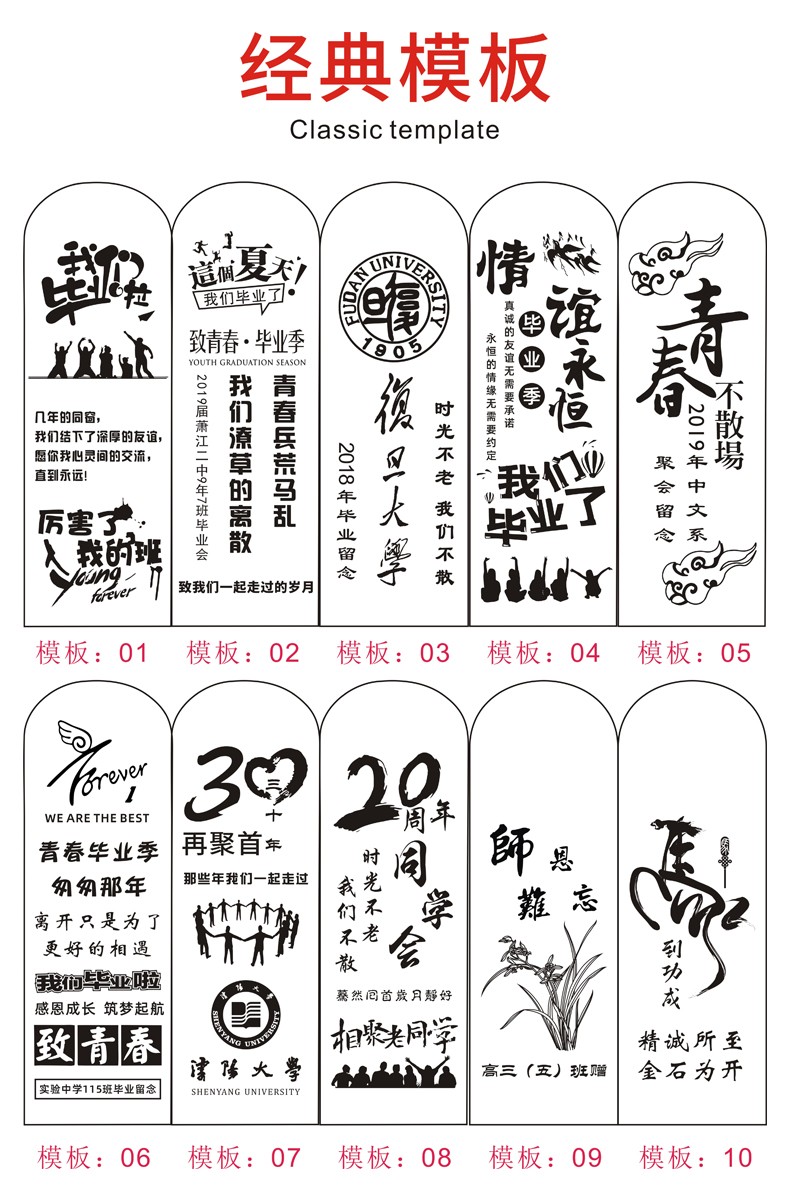 经典模板
Classic template
我们
毕业啦
几年的同窗，
我们结下了深厚的友谊，
愿你我心灵间的交流，
直到永远！
厉害了
我的班
Young
forever
這個夏天！
我们毕业了
致青春·毕业季
YOUTH GRADUATION SEASON
青春兵荒马乱
我们潦草的离散
2019届萧江二中9年7班毕业会
致我们一起走过的岁月
FUDAN UNIVERSITY
1905
復旦大學
时光不老 我们不散
2018年毕业留念
情谊永恒
毕业季
真诚的友谊无需要承诺
永恒的情缘无需要约定
我们
毕业了
青春
不散場
2019年中文系
聚会留念
模板：01
模板：02
模板：03
模板：04
模板：05
Forever
1
WE ARE THE BEST
青春毕业季
匆匆那年
离开只是为了
更好的相遇
我们毕业啦
感恩成长 筑梦起航
致青春
实验中学115班毕业留念
30
三十
再聚首年
那些年我们一起走过
瀋陽大學
SHENYANG UNIVERSITY
瀋陽大學
SHENYANG UNIVERSITY
20
周年
同学会
时光不老
我们不散
蓦然回首歲月静好
相聚老同学
師恩
難忘
高三（五）班赠
馬
到功成
精诚所至
金石为开
模板：06
模板：07
模板：08
模板：09
模板：10